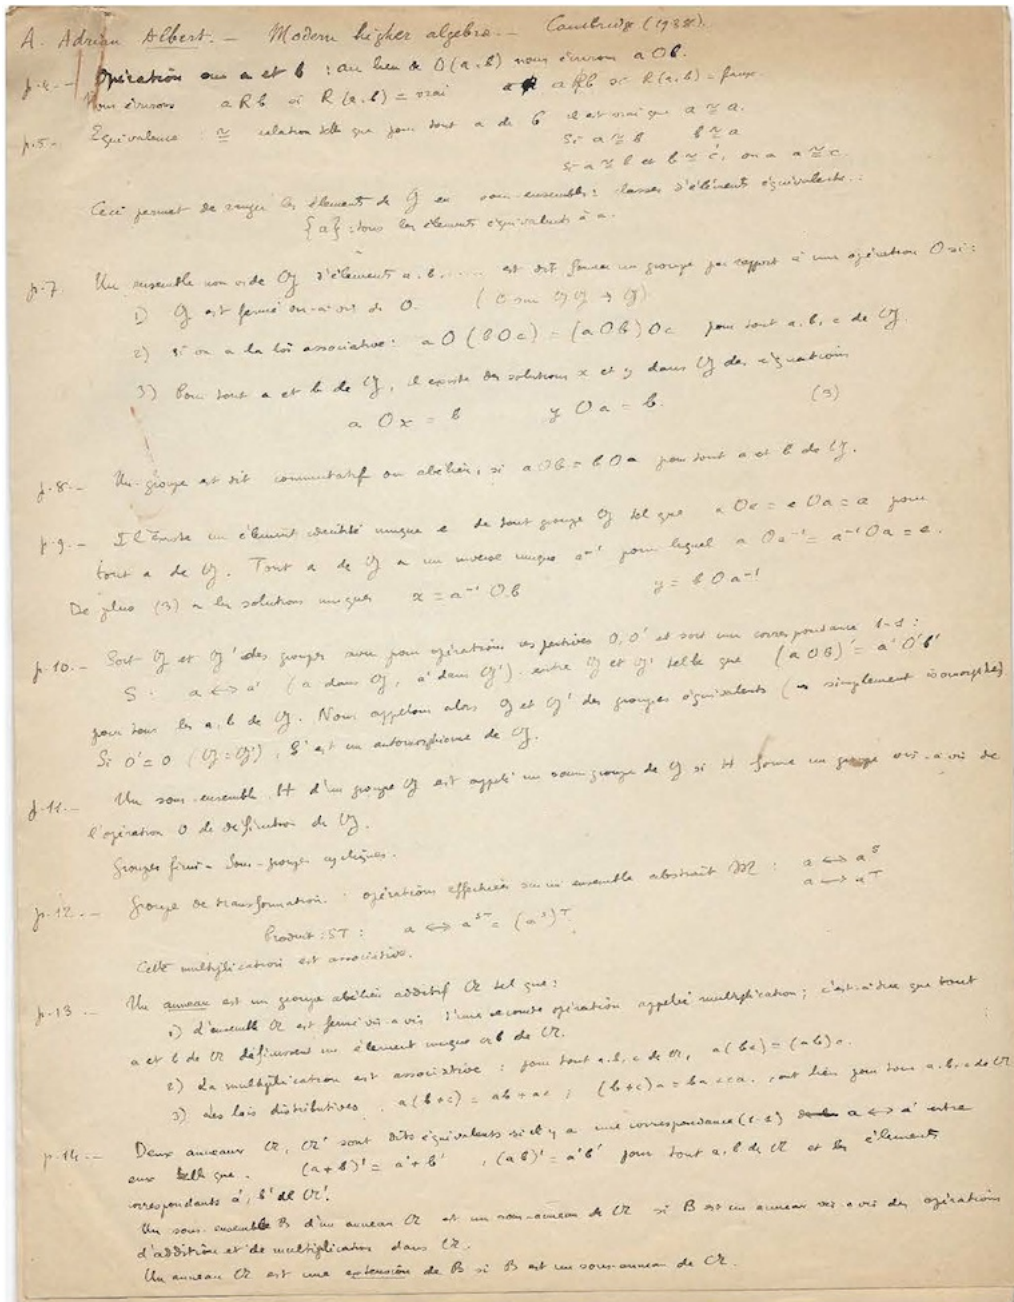 A. Adrian Albert. — Modern higher algebra. — Cambridge (1938).
p.4. — Opération sur a et b : au lieu de O(a,b) nous écrivons a O b.
Nous écrivons a R b si R(a,b) = vrai a R̸ b si R(a,b) = faux.
p.5. — Equivalence : ≅ relation telle que pour tout a de G il est vrai que a ≅ a.
Si a ≅ b b ≅ a
Si a ≅ b et b ≅ c, on a a ≅ c.
Ceci permet de ranger les éléments de G en sous-ensembles : classes d'éléments équivalents.
{a} : tous les éléments équivalents à a.
p.7 Un ensemble non vide G d'éléments a, b, ..... est dit former un groupe par rapport à une opération O si :
1) G est fermé vis-à-vis de O. ( O sur G G → G)
2) si on a la loi associative : a O (b O c) = (a O b) O c pour tout a, b, c de G.
3) Pour tout a et b de G, il existe des solutions x et y dans G des équations
a O x = b y O a = b. (3)
p.8. — Un groupe est dit commutatif ou abélien, si a O b = b O a pour tout a et b de G.
p.9. — Il existe un élément identité unique e de tout groupe G tel que a O e = e O a = a pour
tout a de G. Tout a de G a un inverse unique a⁻¹ pour lequel a O a⁻¹ = a⁻¹ O a = e.
De plus (3) a les solutions uniques x = a⁻¹ O b y = b O a⁻¹
p.10. — Soit G et G' des groupes avec pour opérations respectives O, O' et soit une correspondance 1-1 :
S. a ↔ a' (a dans G, a' dans G') entre G et G' telle que (a O b)' = a' O' b'
pour tous les a, b de G. Nous appelons alors G et G' des groupes équivalents (ou simplement isomorphes)
Si O' = O (G = G'), S est un automorphisme de G.
p.11. — Un sous-ensemble H d'un groupe G est appelé un sous-groupe de G si H forme un groupe vis-à-vis de
l'opération O de définition de G.
Groupes finis — Sous-groupes cycliques.
p.12. — Groupe de transformation. opérations effectuées sur un ensemble abstrait M : a ↔ aˢ
a ↔ aᵀ
Produit : ST : a ↔ aˢᵀ = (aˢ)ᵀ
Cette multiplication est associative.
p.13 — Un anneau est un groupe abélien additif A tel que :
1) L'ensemble A est fermé vis-à-vis d'une seconde opération appelée multiplication ; c'est-à-dire que tout
a et b de A définissent un élément unique ab de A.
2) La multiplication est associative : pour tout a, b, c de A, a(bc) = (ab)c.
3) Les lois distributives. a(b+c) = ab + ac ; (b+c)a = ba + ca. ont lieu pour tous a, b, c de A
p.14. — Deux anneaux A, A' sont dits équivalents s'il y a une correspondance (1-1) a ↔ a' entre
eux telle que. (a+b)' = a' + b' , (ab)' = a'b' pour tout a, b de A et les éléments
correspondants a', b' de A'.
Un sous-ensemble B d'un anneau A est un sous-anneau de A si B est un anneau vis-à-vis des opérations
d'addition et de multiplication dans A.
Un anneau A est une extension de B si B est un sous-anneau de A.